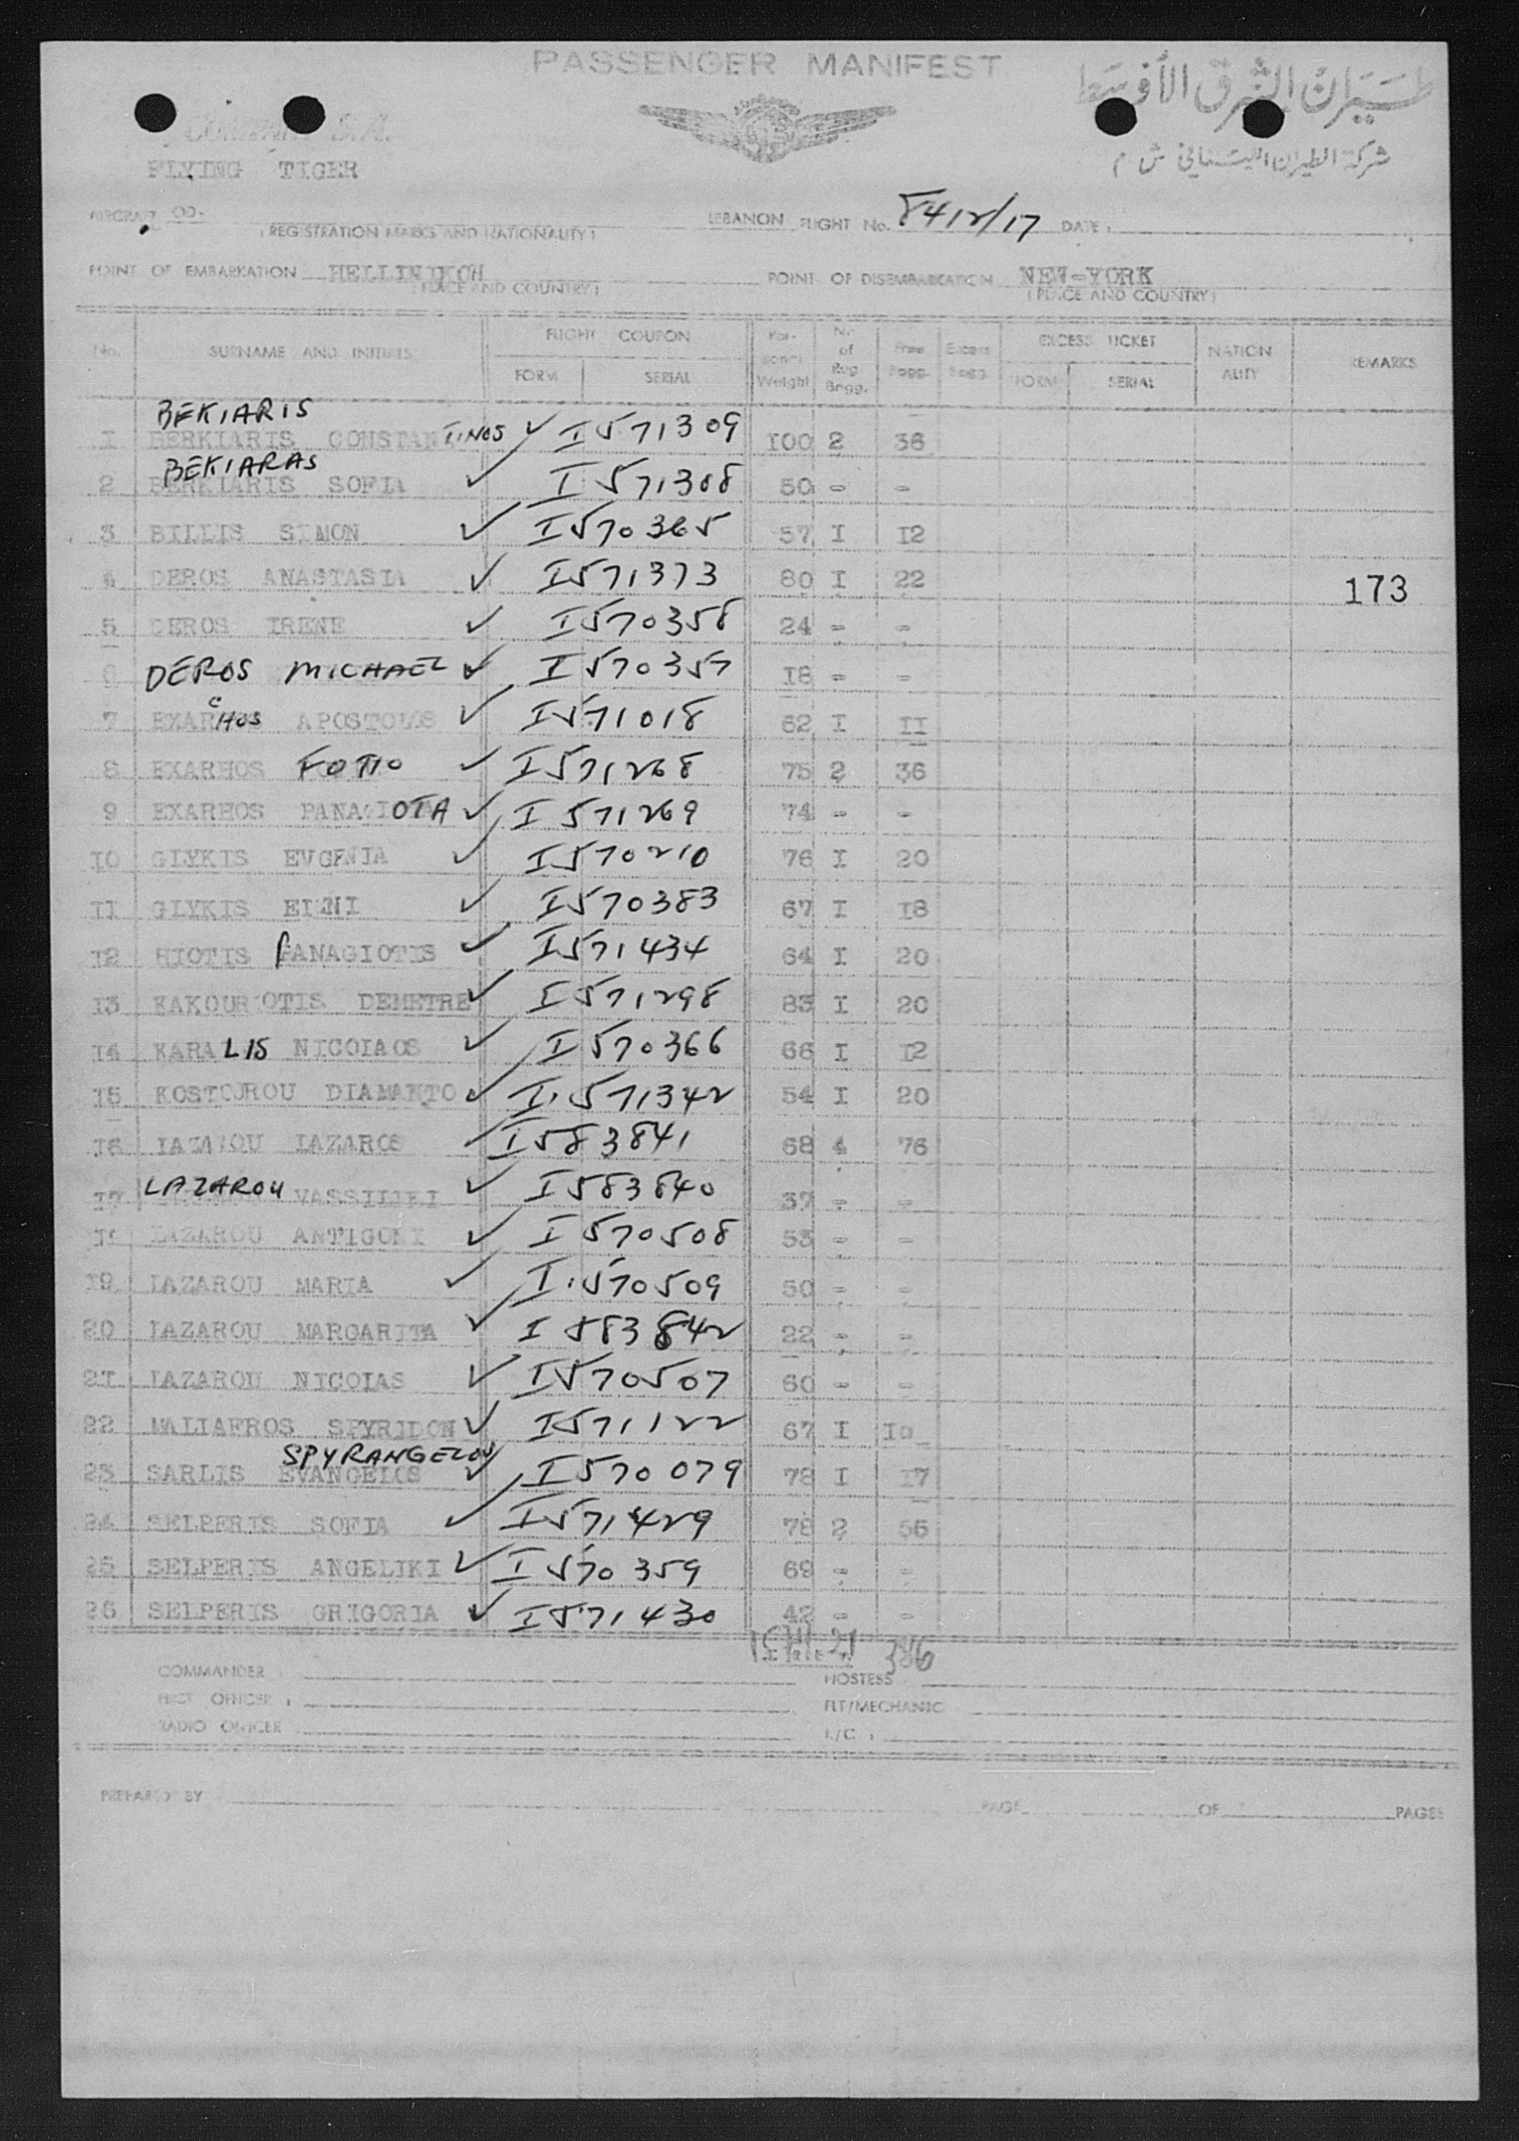 PASSENGER MANIFEST
طيران الشرق الأوسط
شركة الطيران اللبناني ش م
FLYING TIGER
AIRCRAFT OD-
(REGISTRATION MARKS AND NATIONALITY)
LEBANON FLIGHT No. 8412/17 DATE:
POINT OF EMBARKATION HELLINIKON
(PLACE AND COUNTRY)
POINT OF DISEMBARKATION NEW-YORK
(PLACE AND COUNTRY)
No. SURNAME AND INITIALS FLIGHT COUPON FORM SERIAL Personal Weight Nr. of Reg Bagg. Free Bagg. Excess Bagg. EXCESS TICKET FORM SERIAL NATIONALITY REMARKS
BEKIARIS
1 BERKIARIS CONSTANTINOS ✓ I 571309 100 2 36
BEKIARAS
2 BERKIARIS SOFIA ✓ I 571308 50 - -
3 BILLIS SIMON ✓ I 570365 57 I 12
4 DEROS ANASTASIA ✓ I 571373 80 I 22
173
5 DEROS IRENE ✓ I 570358 24 - -
6 DEROS MICHAEL ✓ I 570357 18 - -
7 EXARCHOS APOSTOLOS ✓ I 571018 62 I II
8 EXARHOS FOTIO ✓ I 571268 75 2 36
9 EXARHOS PANAGIOTA ✓ I 571269 74 - -
IO GLYKIS EVGENIA ✓ I 570210 76 I 20
II GLYKIS EIENI ✓ I 570383 67 I I8
I2 HIOTIS PANAGIOTIS ✓ I 571434 64 I 20
I3 KAKOURIOTIS DEMETRE ✓ I 571298 83 I 20
I4 KARALIS NICOIAOS ✓ I 570366 66 I I2
I5 KOSTOUROU DIAMANTO ✓ I 571342 54 I 20
I6 IAZAROU IAZAROS ✓ I 583841 68 4 76
I7 LAZAROU VASSILIKI ✓ I 583840 37 - -
I8 IAZAROU ANTIGONI ✓ I 570508 53 - -
I9 IAZAROU MARIA ✓ I 570509 50 - -
20 IAZAROU MARGARITA ✓ I 583842 22 - -
2I IAZAROU NICOIAS ✓ I 570507 60 - -
22 MALIAFROS SPYRIDON ✓ I 571122 67 I IO
SPYRANGELOS
23 SARLIS EVANGELOS ✓ I 570079 78 I I7
24 SELPERIS SOFIA ✓ I 571429 78 2 56
25 SELPERIS ANGELIKI ✓ I 570359 69 - -
26 SELPERIS GRIGORIA ✓ I 571430 42 - -
21 386
COMMANDER : HOSTESS
FIRST OFFICER : FLT/MECHANIC
RADIO OFFICER
PREPARED BY PAGE OF PAGES